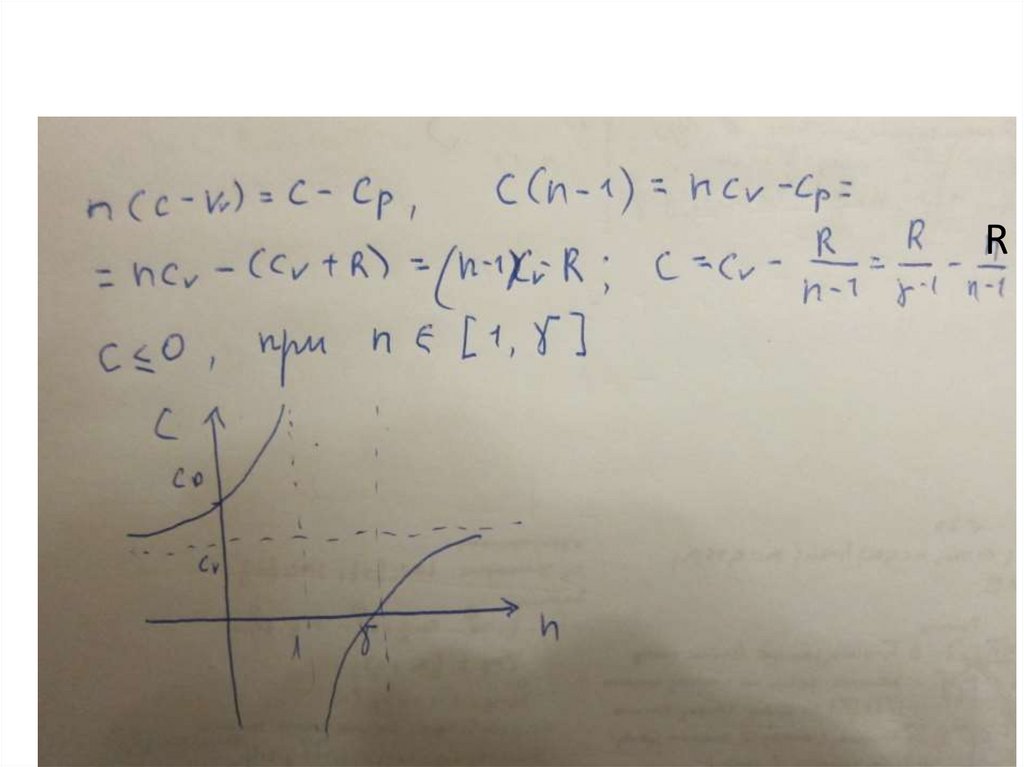 n(c-Cv) = C - Cp, C(n-1) = ncv - Cp =
= ncv - (Cv + R) = (n-1)Cv - R; C = Cv - R/(n-1) = R/(γ-1) - R/(n-1)
C ≤ 0, при n ∈ [1, γ]
C
Cp
Cv
1
γ
n